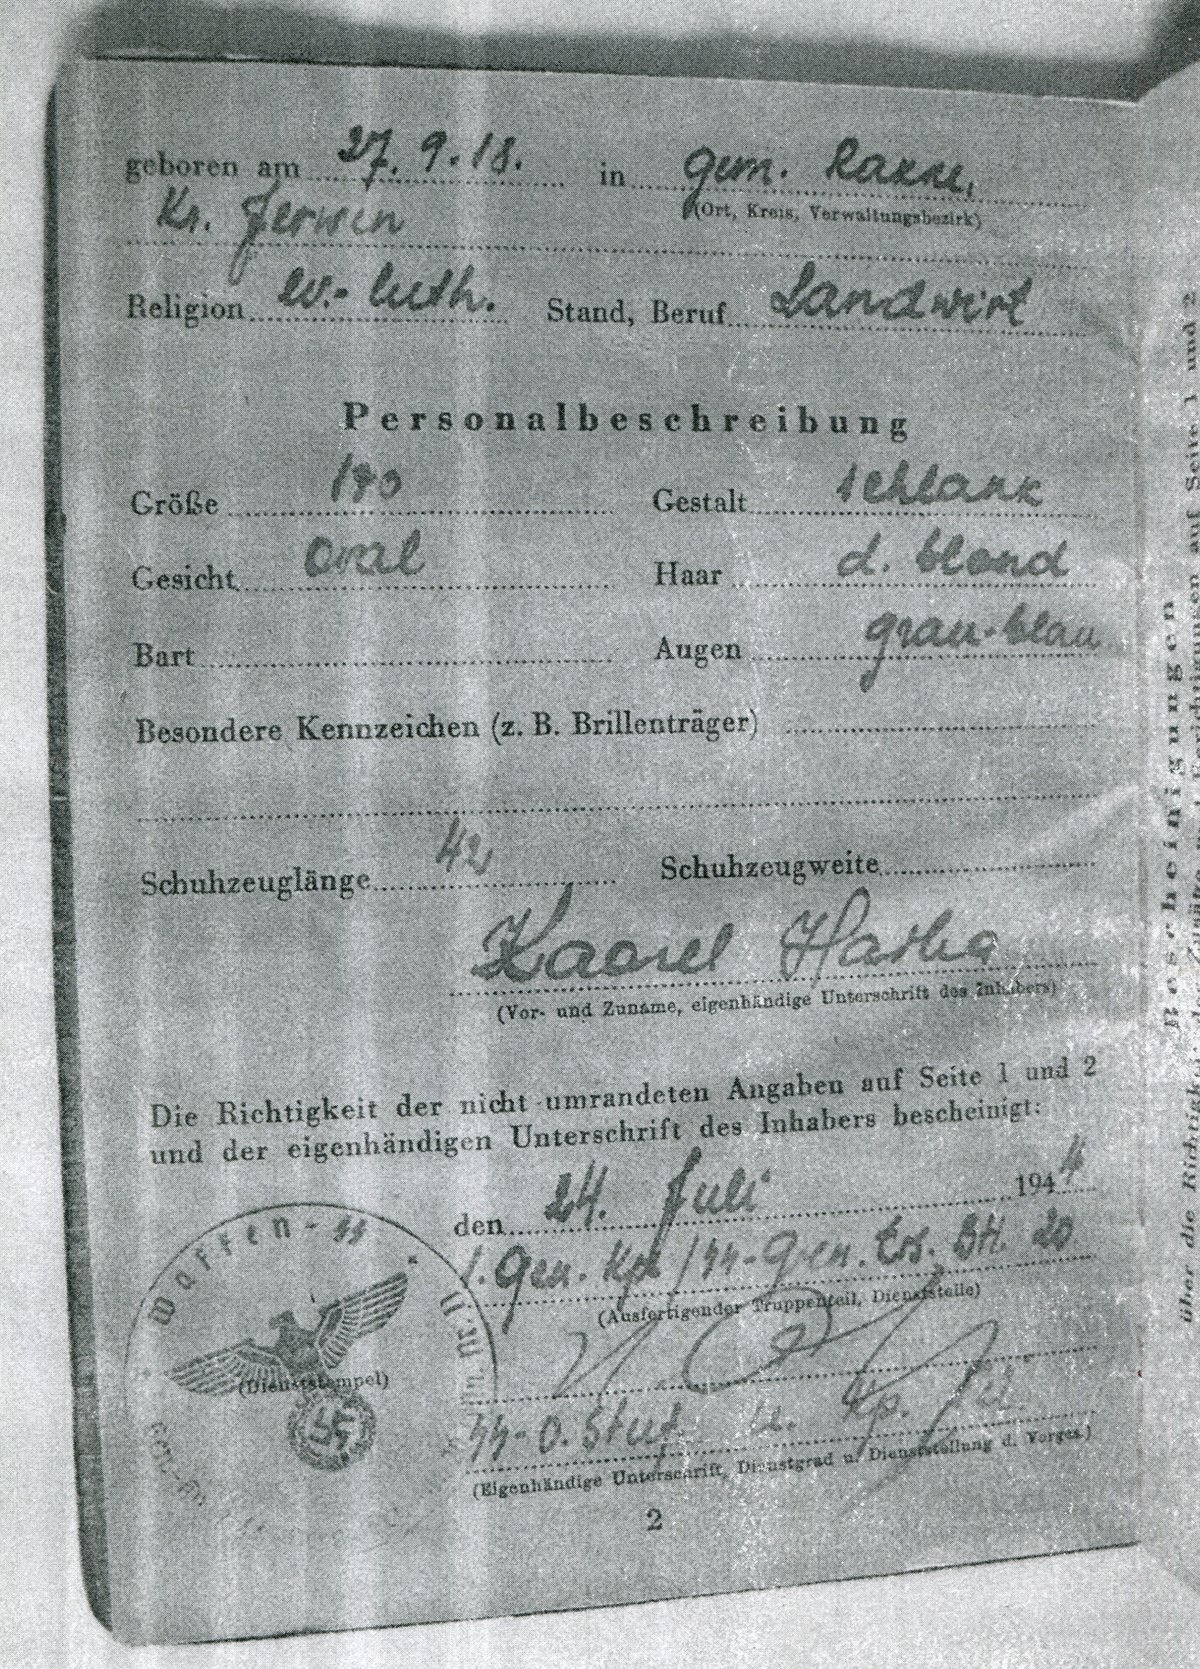 geboren am 27. 9. 18. in gem. Rakke,
(Ort, Kreis, Verwaltungsbezirk)
Kr. Jerwen
Religion ev.-luth. Stand, Beruf Landwirt
Personalbeschreibung
Größe 170 Gestalt schlank
Gesicht oval Haar d. blond
Bart Augen grau-blau
Besondere Kennzeichen (z. B. Brillenträger)
Schuhzeuglänge 42 Schuhzeugweite
Kaarel
(Vor- und Zuname, eigenhändige Unterschrift des Inhabers)
Die Richtigkeit der nicht umrandeten Angaben auf Seite 1 und 2
und der eigenhändigen Unterschrift des Inhabers bescheinigt:
den 24. Juli 1944
1. Gen. Kp. / SS-Gren. Ers. Btl. 20
(Ausfertigender Truppenteil, Dienststelle)
SS-O. Stuf. u. Kp.
(Eigenhändige Unterschrift, Dienstgrad u. Dienststellung d. Vorges.)
Waffen-SS
(Dienststempel)
2
Bescheinigungen
über die Richtigkeit
auf Seite 1 und 2